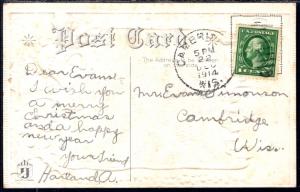 Post Card
CAMBRIDGE
5 PM
22
DEC
1914
WIS.
Dear Evans:-
I wish you
a merry
Christmas
and a happy
new year
your friend
Harland A.
Mrs. Evans Simonson
Cambridge
Wis.